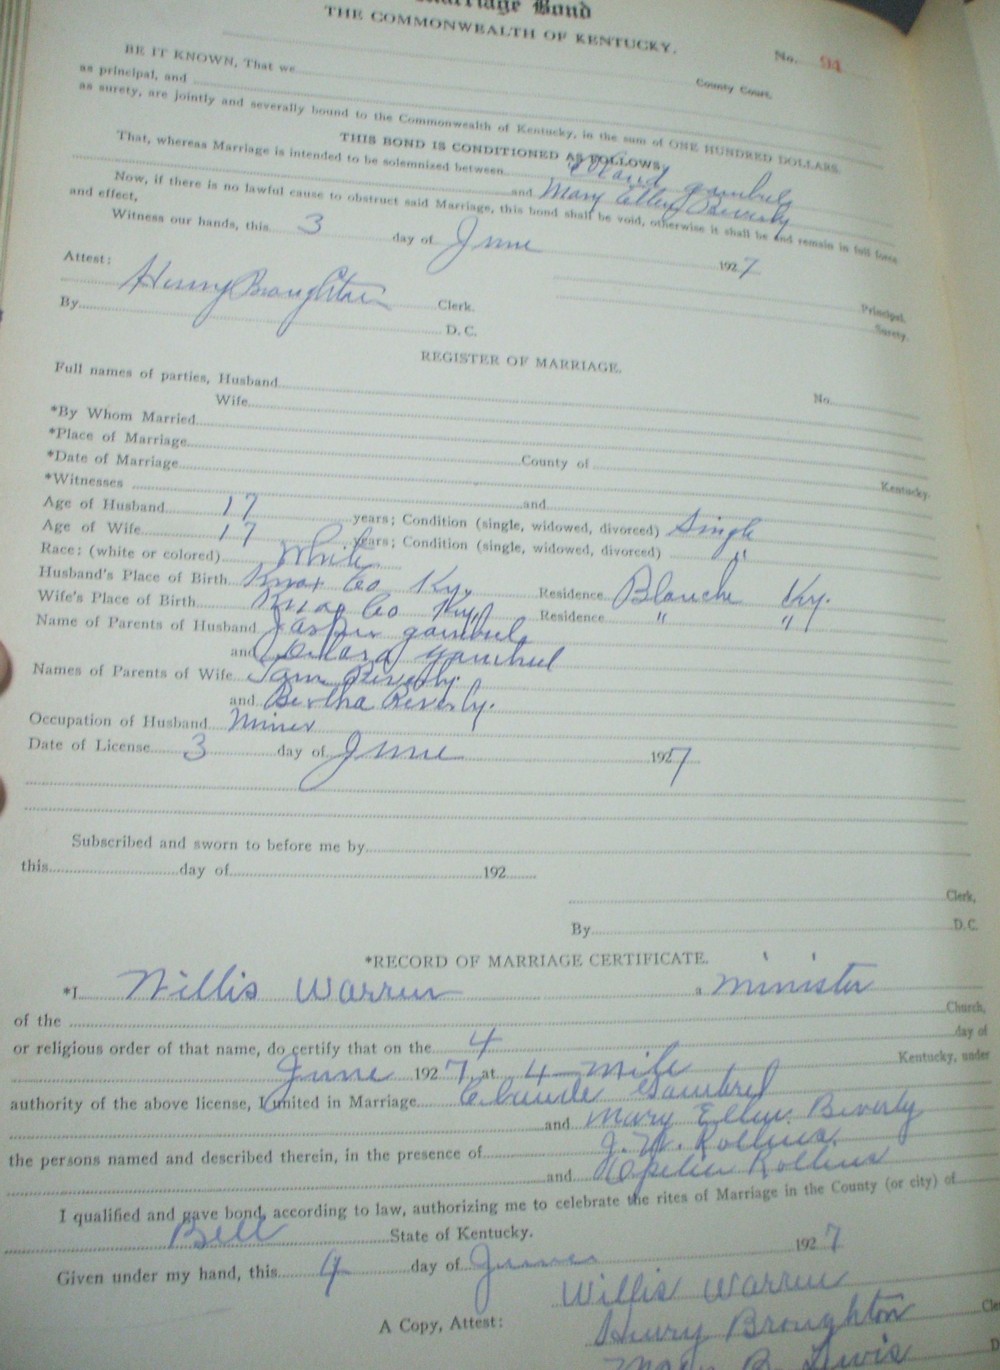 Marriage Bond
THE COMMONWEALTH OF KENTUCKY.
No. 94
BE IT KNOWN, That we
County Court,
as principal, and
as surety, are jointly and severally bound to the Commonwealth of Kentucky, in the sum of ONE HUNDRED DOLLARS.
THIS BOND IS CONDITIONED AS FOLLOWS:
That, whereas Marriage is intended to be solemnized between gambrel
and Mary Ellen Beverly
Now, if there is no lawful cause to obstruct said Marriage, this bond shall be void, otherwise it shall be and remain in full force
and effect,
Witness our hands, this 3 day of June 1927
Principal.
Attest:
Surety.
Henry Broughton Clerk.
By D. C.
REGISTER OF MARRIAGE.
Full names of parties, Husband No.
Wife
*By Whom Married
*Place of Marriage
*Date of Marriage County of Kentucky.
*Witnesses and
Age of Husband 17 years; Condition (single, widowed, divorced) Single
Age of Wife 17 years; Condition (single, widowed, divorced) "
Race: (white or colored) White
Husband's Place of Birth Knox Co Ky. Residence Blanche Ky.
Wife's Place of Birth Knox Co Ky. Residence " "
Name of Parents of Husband gambrel
and gambrel
Names of Parents of Wife Sam Beverly.
and Bertha Beverly.
Occupation of Husband Miner
Date of License 3 day of June 1927
Subscribed and sworn to before me by
this day of 192
Clerk,
By D.C.
*RECORD OF MARRIAGE CERTIFICATE.
*I Willis Warren a minister
of the Church,
or religious order of that name, do certify that on the 4 day of
June 1927, at 4 mile Kentucky, under
authority of the above license, I united in Marriage Gambrel
and Mary Ellen Beverly
the persons named and described therein, in the presence of J. W. Rollins.
and Rollins
I qualified and gave bond, according to law, authorizing me to celebrate the rites of Marriage in the County (or city) of
Bell State of Kentucky.
Given under my hand, this 4 day of June 1927
Willis Warren
A Copy, Attest: Henry Broughton Cle
B. Lewis D.